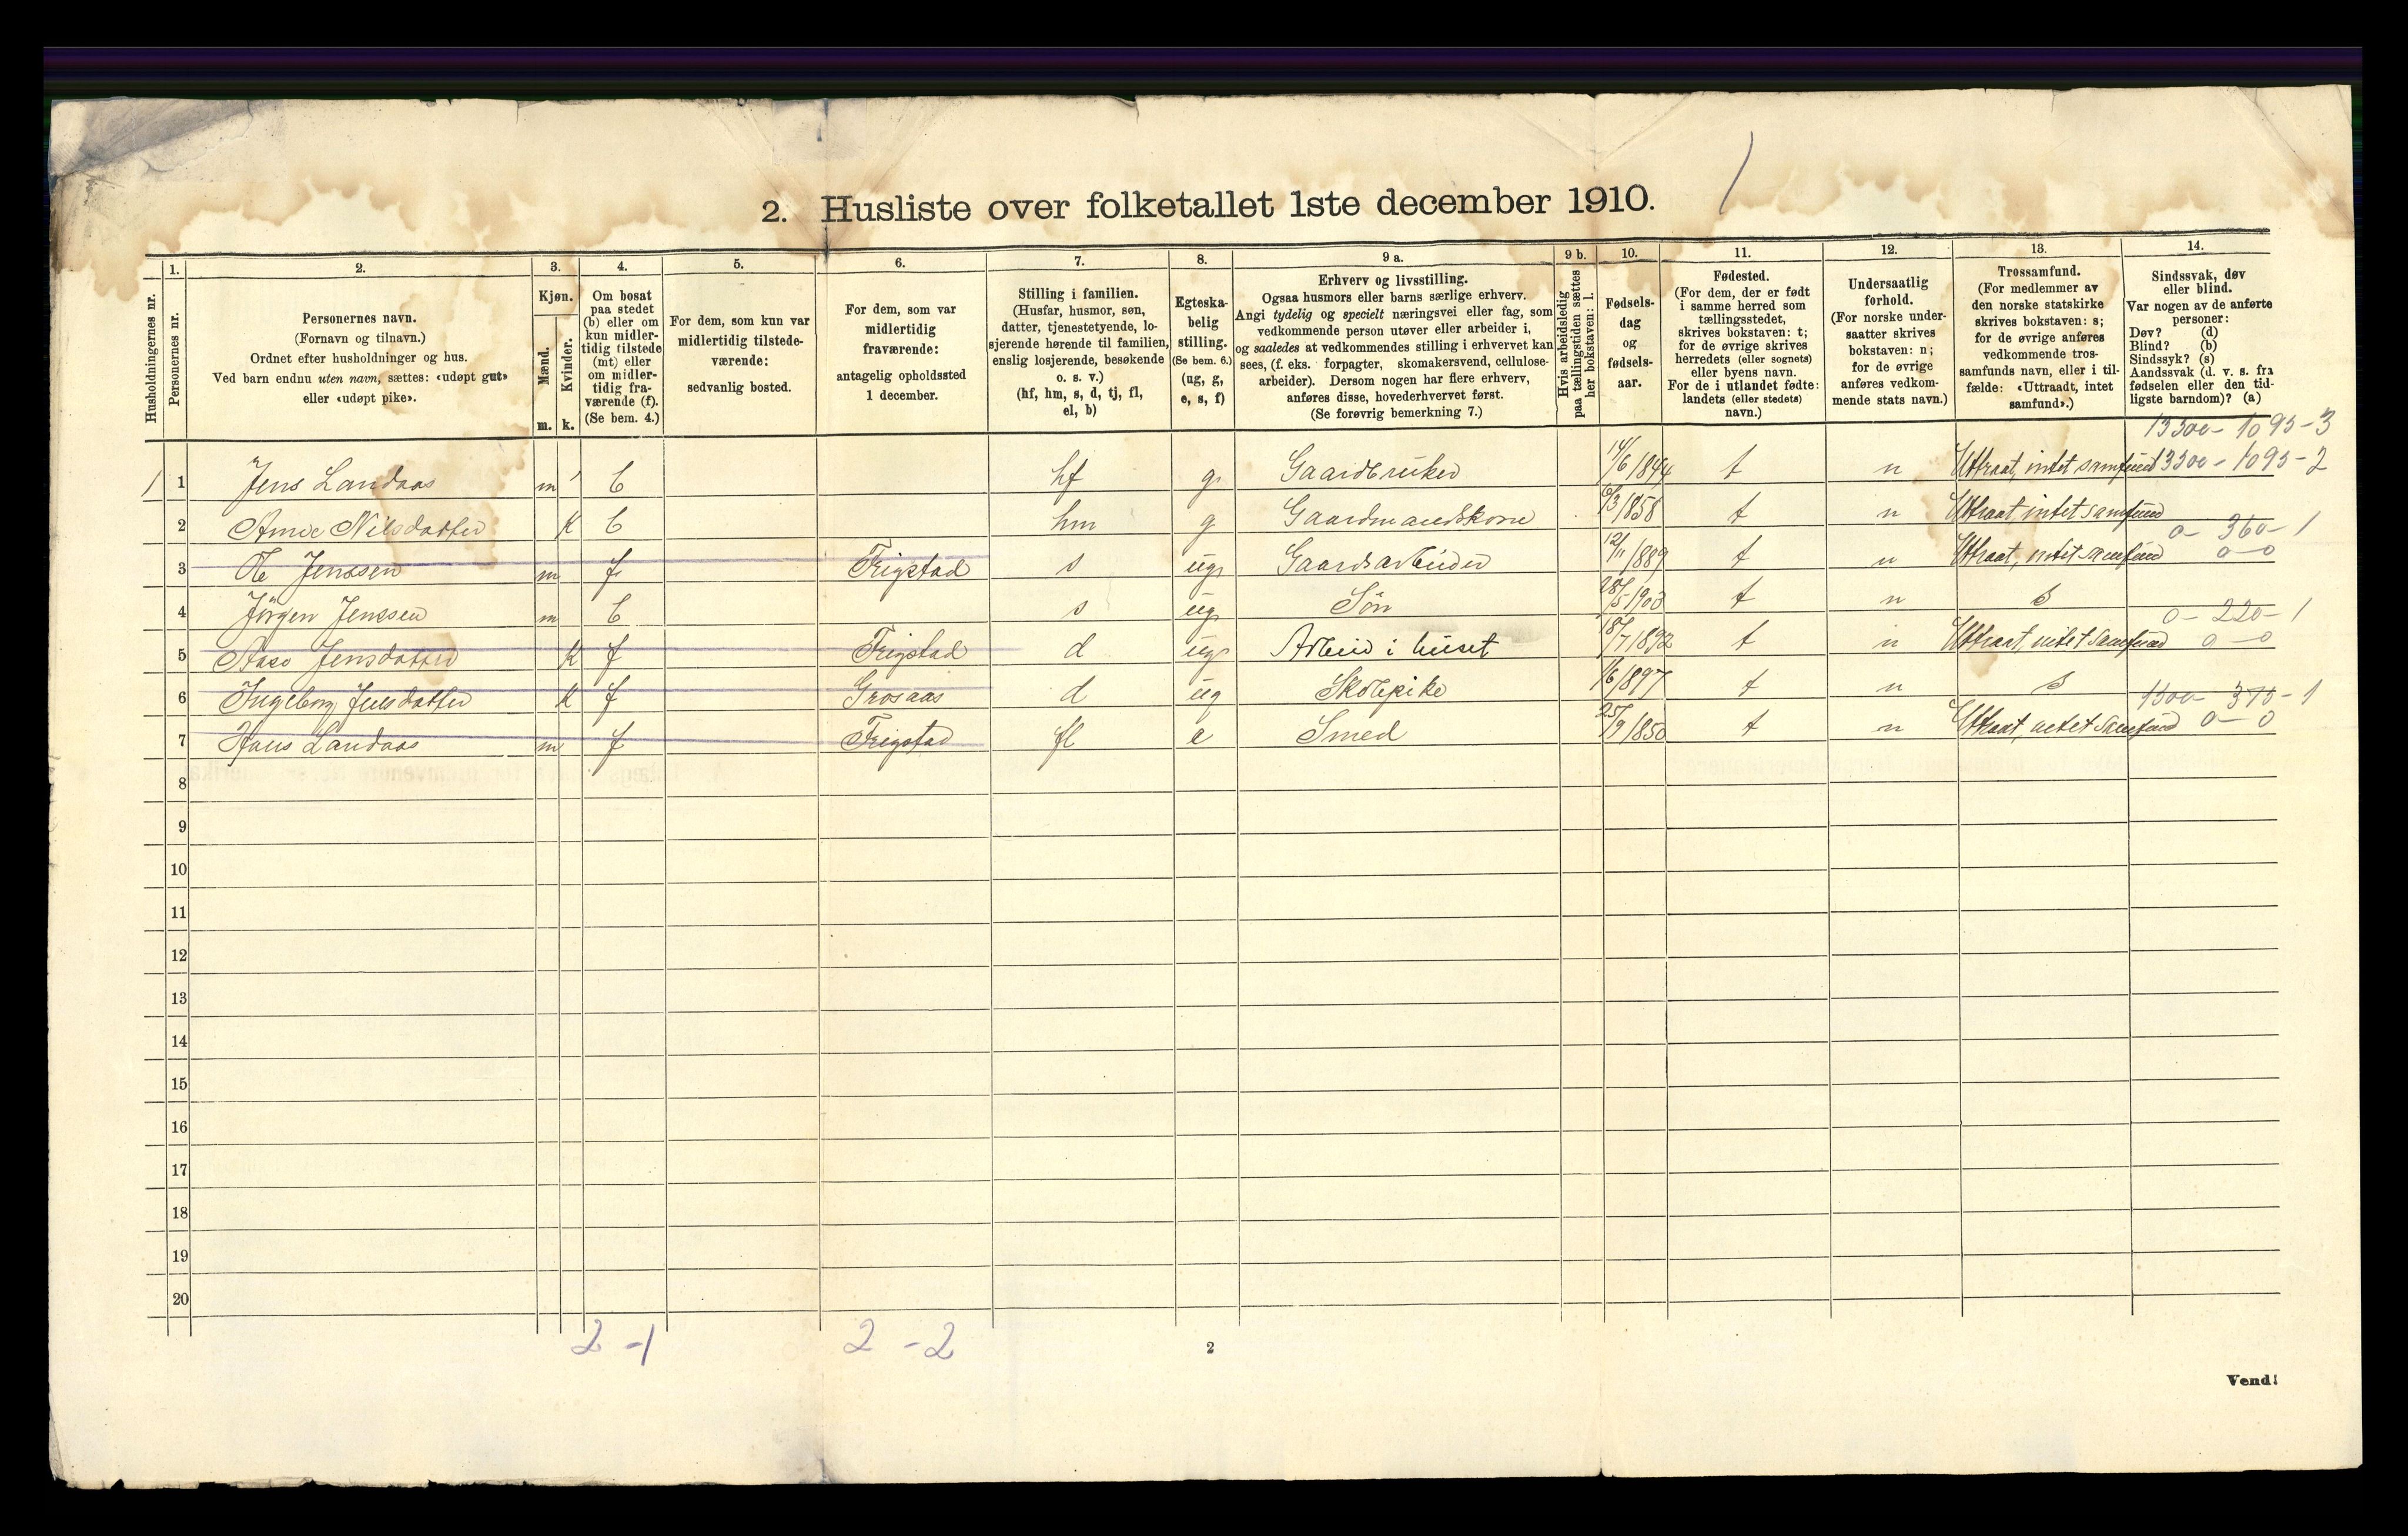 2. Husliste over folketallet 1ste december 1910.
Husholdningernes nr.
1.
Personernes nr.
2.
Personernes navn.
(Fornavn og tilnavn.)
Ordnet efter husholdninger og hus.
Ved barn endnu uten navn, sættes: «udøpt gut»
eller «udøpt pike».
3.
Kjøn.
Mænd.
Kvinder.
m. k.
4.
Om bosat
paa stedet
(b) eller om
kun midler-
tidig tilstede
(mt) eller
om midler-
tidig fra-
værende (f).
(Se bem. 4.)
5.
For dem, som kun var
midlertidig tilstede-
værende:
sedvanlig bosted.
6.
For dem, som var
midlertidig
fraværende:
antagelig opholdssted
1 december.
7.
Stilling i familien.
(Husfar, husmor, søn,
datter, tjenestetyende, lo-
sjerende hørende til familien,
enslig losjerende, besøkende
o. s. v.)
(hf, hm, s, d, tj, fl,
el, b)
8.
Egteska-
belig
stilling.
(Se bem. 6.)
(ug, g,
e, s, f)
9 a.
Erhverv og livsstilling.
Ogsaa husmors eller barns særlige erhverv.
Angi tydelig og specielt næringsvei eller fag, som
vedkommende person utøver eller arbeider i,
og saaledes at vedkommendes stilling i erhvervet kan
sees, (f. eks. forpagter, skomakersvend, cellulose-
arbeider). Dersom nogen har flere erhverv,
anføres disse, hovederhvervet først.
(Se forøvrig bemerkning 7.)
9 b.
Hvis arbeidsledig
paa tællingstiden sættes
her bokstaven: l.
10.
Fødsels-
dag
og
fødsels-
aar.
11.
Fødested.
(For dem, der er født
i samme herred som
tællingsstedet,
skrives bokstaven: t;
for de øvrige skrives
herredets (eller sognets)
eller byens navn.
For de i utlandet fødte:
landets (eller stedets)
navn.)
12.
Undersaatlig
forhold.
(For norske under-
saatter skrives
bokstaven: n;
for de øvrige
anføres vedkom-
mende stats navn.)
13.
Trossamfund.
(For medlemmer av
den norske statskirke
skrives bokstaven: s;
for de øvrige anføres
vedkommende tros-
samfunds navn, eller i til-
fælde: «Uttraadt, intet
samfund».)
14.
Sindssvak, døv
eller blind.
Var nogen av de anførte
personer:
Døv? (d)
Blind? (b)
Sindssyk? (s)
Aandssvak (d. v. s. fra
fødselen eller den tid-
ligste barndom)? (a)
13300 - 1095 - 3
1 1 Jens Landaas m b hf g. Gaardbruker 14/6 1844 t n Uttraat, intet samfund 13300 - 1095 - 2
2 Anne Nilsdatter K b hm g Gaardmandskone 6/3 1858 t n Uttraat intet samfund
0 - 360 - 1
3 Ole Jenssen m f Frigstad s ug Gaardsarbeider 12/11 1889 t n Uttraat, intet samfund 0 - 0
4 Jörgen Jenssen m b s ug Sön 28/5 1903 t n S
0 - 220 - 1
5 Aase Jensdatter K f Frigstad d ug Arbeid i huset 18/7 1892 t n Uttraat, intet samfund 0 - 0
6 Ingeborg Jensdatter K f Grosaas d ug Skolepike 1/6 1897 t n S
1500 - 375 - 1
7 Hans Landaas m f Frigstad fl e Smed 25/9 1850 t n Uttraat, intet samfund 0 - 0
8
9
10
11
12
13
14
15
16
17
18
19
20
2 - 1 2 - 2
2
Vend!